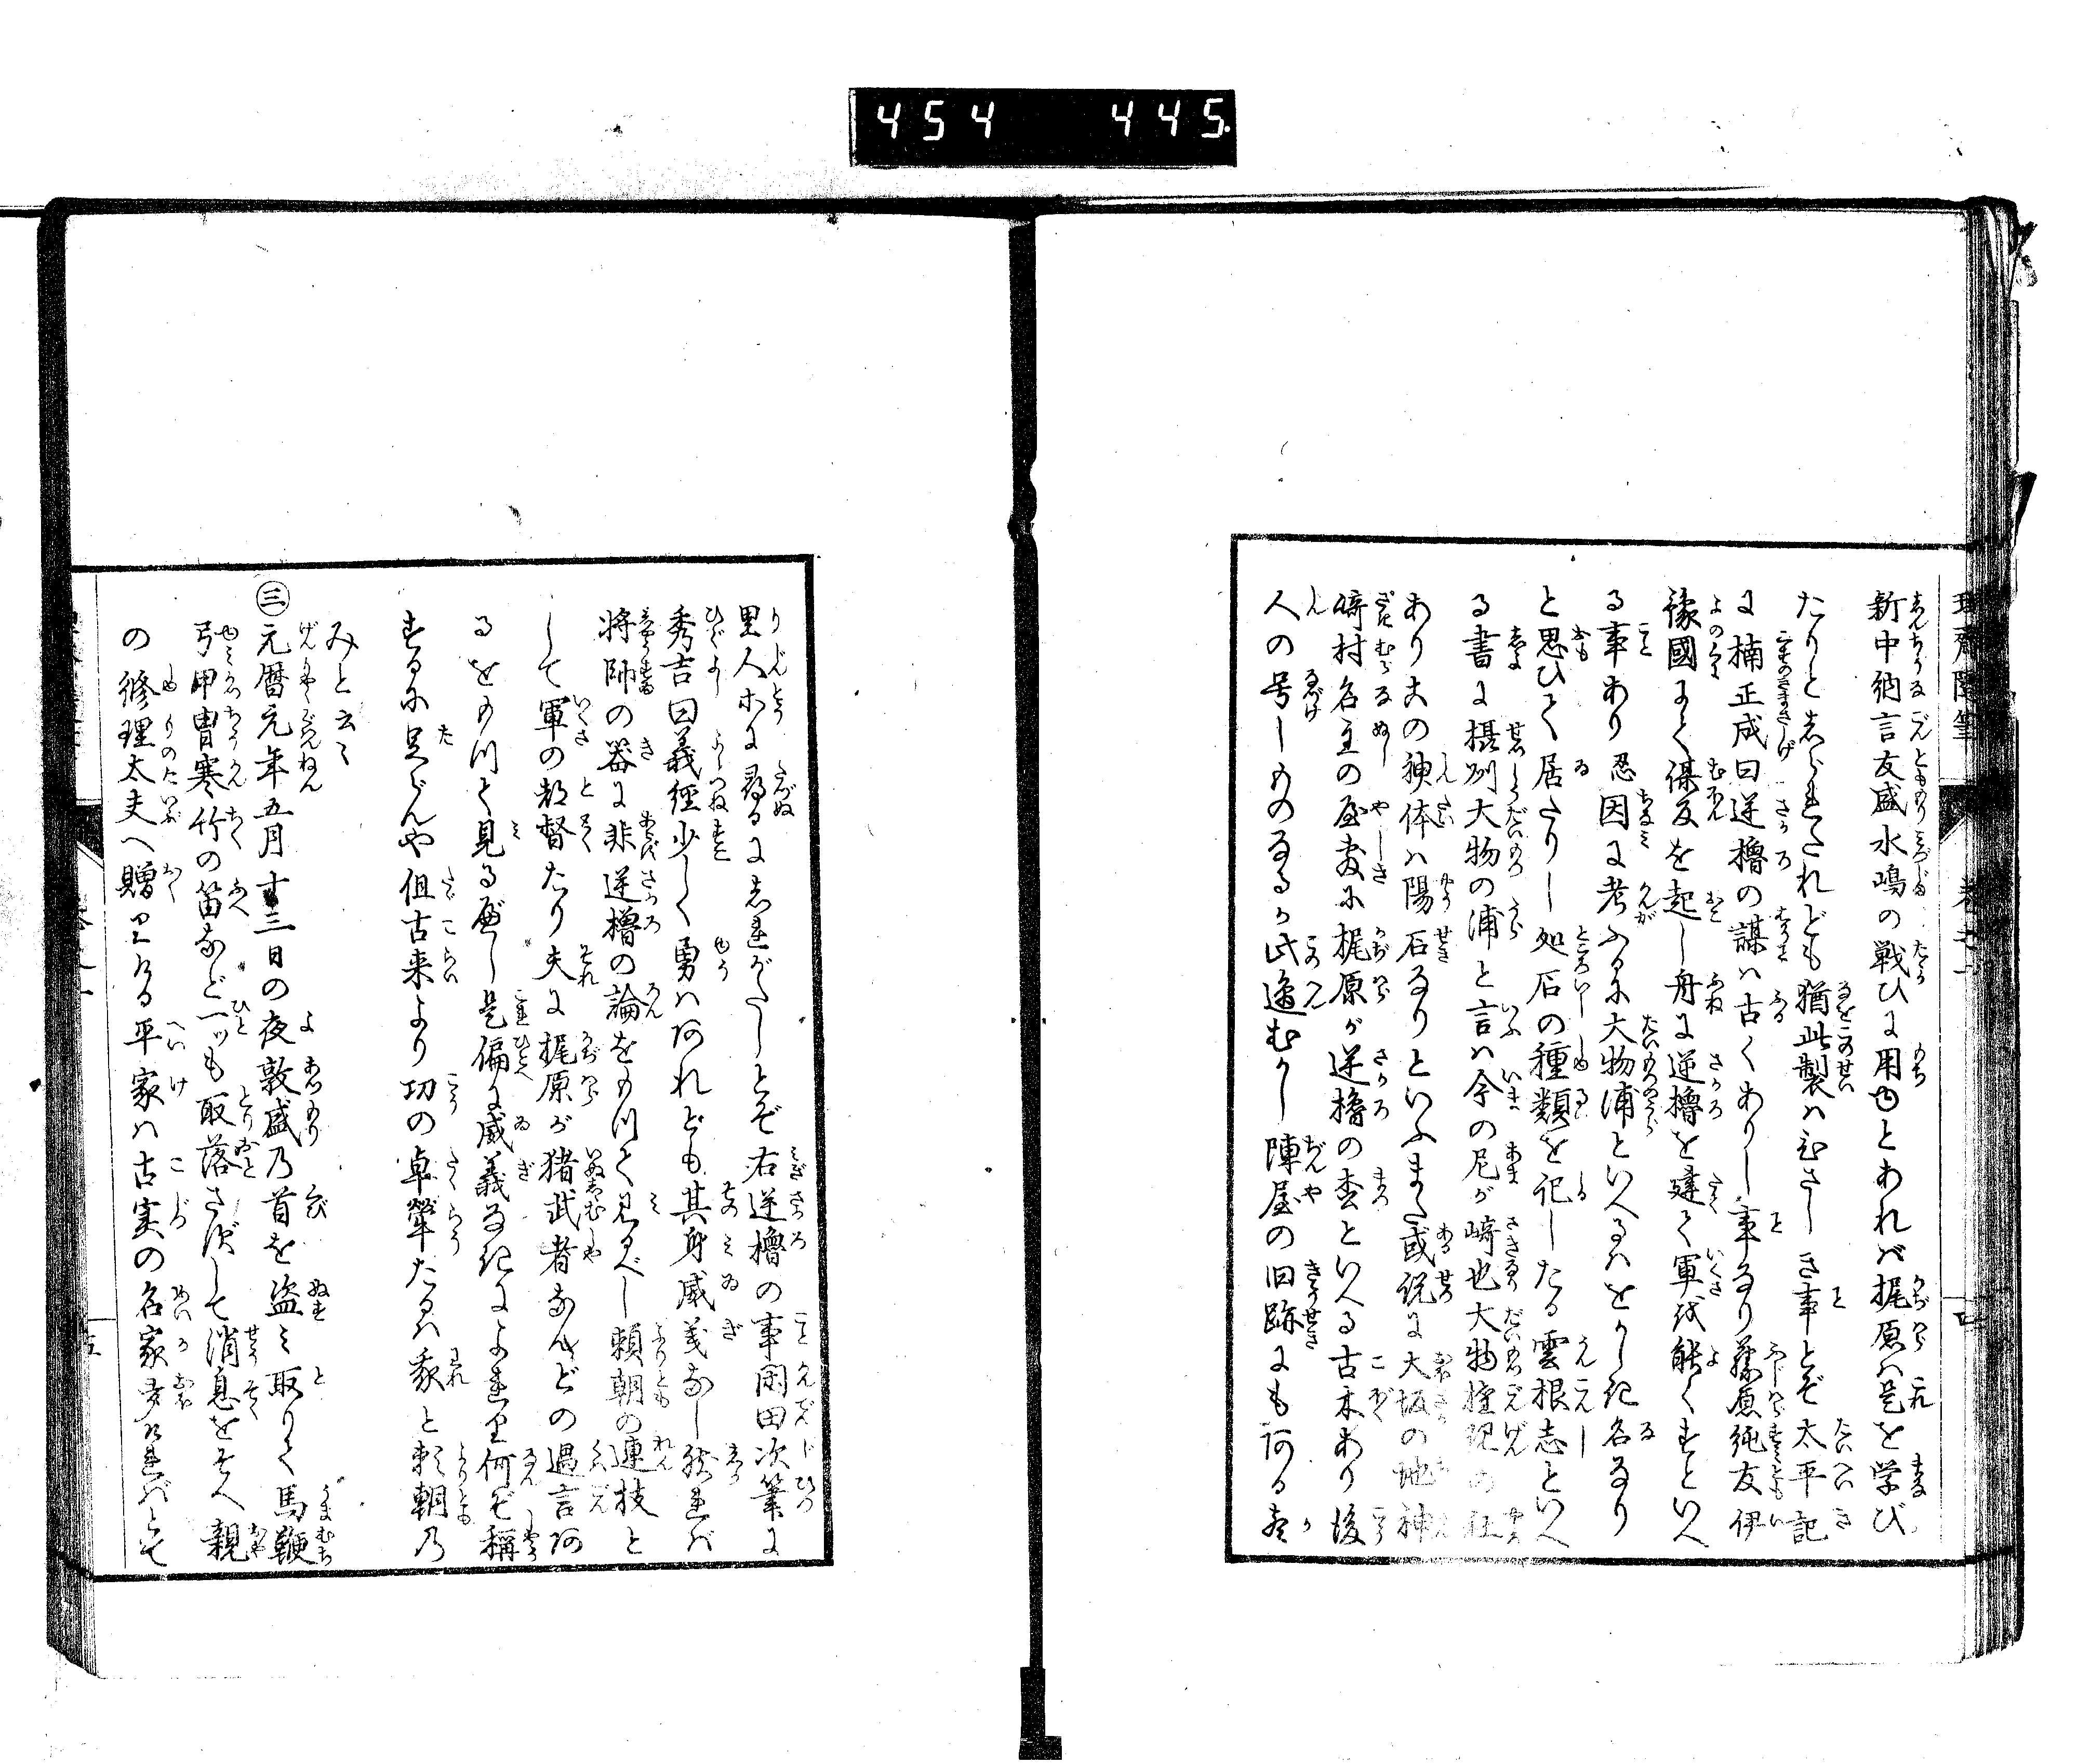 454 445.
新中納言友盛水嶋の戦ひに用ゆとあれバ梶原ハ是を学び
たりと志られたれども猶此製ハむさしき事とぞ太平記
に楠正成曰逆櫓の謀ハ古くありし事なり藤原純友伊
豫國にて謀反を起し舟に逆櫓を建て軍を能くすといへ
る事あり忍因に考ふるに大物浦といへるハをかし記名なり
と思ひて居たりし処石の種類を記したる雲根志といへ
る書に摂州大物の浦と言ハ今の尼が崎也大物権現の社
あり其の神体ハ陽石なりといふまた或説に大坂の地神
崎村名主の屋敷に梶原が逆櫓の松といへる古木あり後
人の号しものなるか此邊むかし陣屋の旧跡にも阿る歟
里人ホに尋るに志れがたしとぞ右逆櫓の事閑田次筆に
秀吉曰義經少しく勇ハ阿れども其身威義なし然れバ
将帥の器に非逆櫓の論をもつて見るべし頼朝の連枝と
して軍の都督たり夫に梶原が猪武者なんどの過言阿
るをもつて見る べし是偏に威義なきによれり何ぞ稱
するに足らんや但古来より功の卓犖たるハ我と頼朝乃
みと云々
㊂元暦元年五月十三日の夜敦盛乃首を盗ミ取りて馬鞭
弓甲冑寒竹の笛など一ッも取落さずして消息をそへ親
の修理太夫へ贈りける平家ハ古実の名家多けれバとて